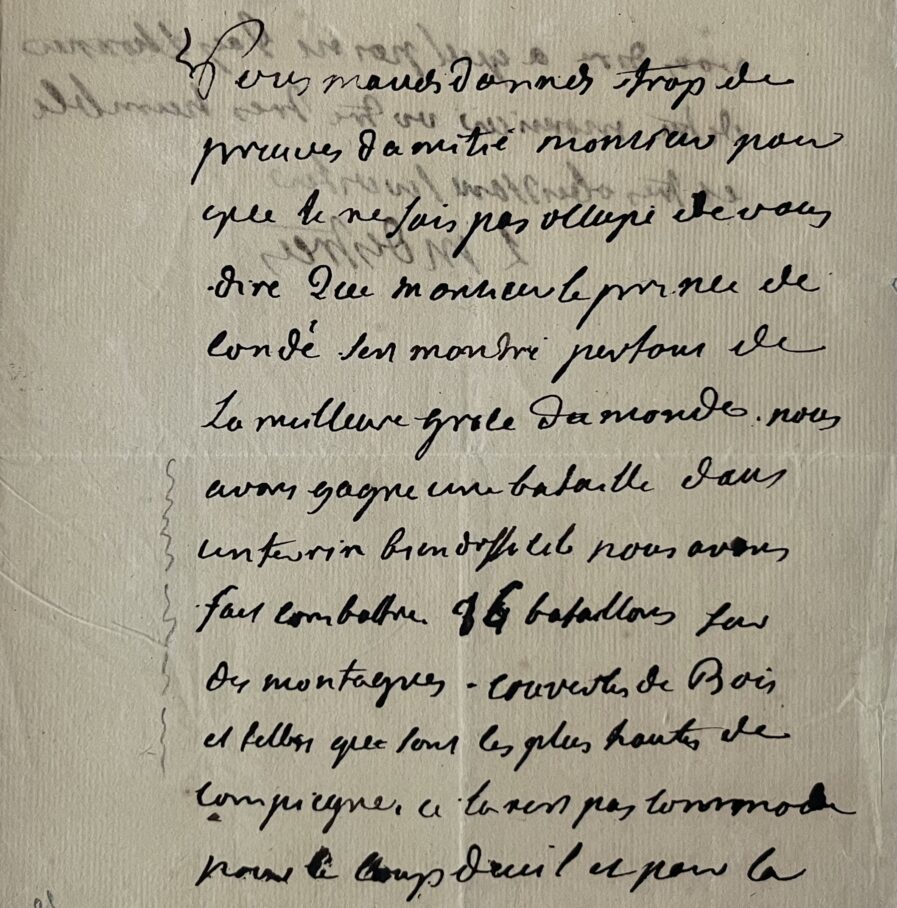 Vous maves donnes trop de
preuves damitié monsieur pour
que je ne sois pas occupé de vous
dire Que monsieur le prince de
condé sest montré partout de
La meilleure grace du monde. nous
avons gagne une bataille dans
un terrin bien difficile nous avons
fait combattre 16 bataillons sur
des montagnes couvertes de Bois
et telles que sont les plus hautes de
compiegne. ce la nest pas commode
pour le coup deuil et pour la